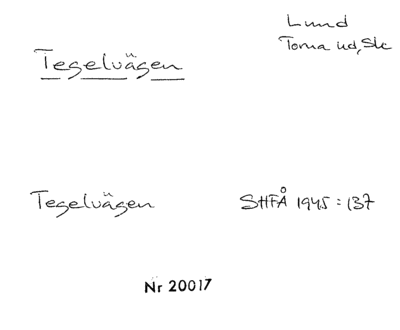 Lund
Torna hd, Sk
Tegelvägen
Tegelvägen SHFÅ 1945:137
Nr 20017